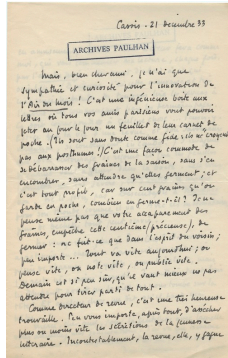 Cassis - 21 décembre 33
ARCHIVES PAULHAN
Mais, bien cher ami, je n'ai que
sympathie et curiosité pour l'innovation de
l'Air du mois ! C'est une ingénieuse boîte aux
lettres où tous vos amis parisiens vont pouvoir
jeter au jour le jour un feuillet de leur carnet de
poche. (Ils sont sans doute comme Gide : ils ne croyent
pas aux posthumes !) C'est une façon commode de
se débarrasser des graines de la saison, sans s'en
encombrer, sans attendre qu'elles germent ; et
c'est tout profit, car sur cent grains qu'on
garde en poche, combien en germe-t-il ? Je ne
pense même pas que votre accaparement des
graines, empêche cette centième, précieuse, de
germer : ne fût-ce que dans l'esprit du voisin ;
peu importe... Tout va vite aujourd'hui ; on
pense vite, on note vite, on publie vite.
Demain est si peu sûr, qu'il vaut mieux ne pas
attendre pour tirer parti de tout.
Comme directeur de revue, c'est une très heureuse
trouvaille. Peu vous importe, après tout, d'assécher
plus ou moins vite les sécrétions de la jeunesse
littéraire. Incontestablement, la revue, elle, y gagne